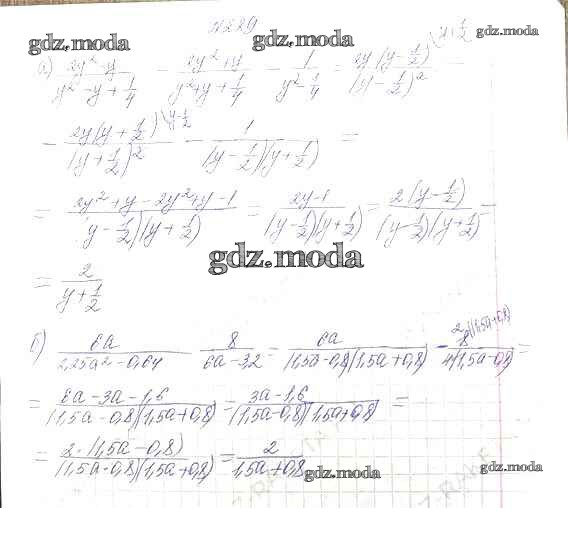 №289
gdz.moda gdz.moda gdz.moda
а) (2y² - y)/(y² - y + 1/4) - (2y² + y)/(y² + y + 1/4) - 1/(y² - 1/4) = 2y(y - 1/2)\y+1/2 /(y - 1/2)² -
- 2y(y + 1/2)\y-1/2 /(y + 1/2)² - 1/((y - 1/2)(y + 1/2)) =
= (2y² + y - 2y² + y - 1)/((y - 1/2)(y + 1/2)) = (2y - 1)/((y - 1/2)(y + 1/2)) = 2(y - 1/2)/((y - 1/2)(y + 1/2)) =
gdz.moda
= 2/(y + 1/2)
б) 6a/(2,25a² - 0,64) - 8/(6a - 3,2) = 6a/((1,5a - 0,8)(1,5a + 0,8)) - 8\2(1,5a+0,8) /(4(1,5a - 0,8)) =
= (6a - 3a - 1,6)/((1,5a - 0,8)(1,5a + 0,8)) = (3a - 1,6)/((1,5a - 0,8)(1,5a + 0,8)) =
= 2·(1,5a - 0,8)/((1,5a - 0,8)(1,5a + 0,8)) = 2/(1,5a + 0,8)
gdz.moda gdz.moda